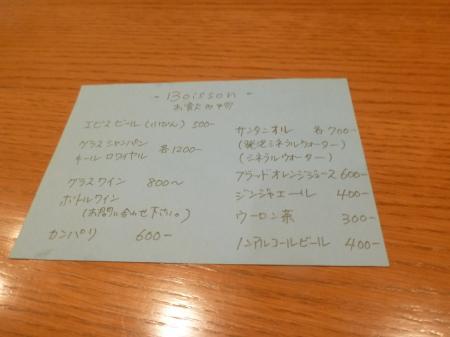 - Boisson -
お飲み物
エビスビール(小びん) 500-
グラスシャンパン
キールロワイヤル 各1200-
グラスワイン 800〜
ボトルワイン
(お問い合わせ下さい。)
カンパリ 600-
サンタニオル 各700-
(発泡ミネラルウォーター)
(ミネラルウォーター)
ブラッドオレンジジュース 600-
ジンジャエール 400-
ウーロン茶 300-
ノンアルコールビール 400-